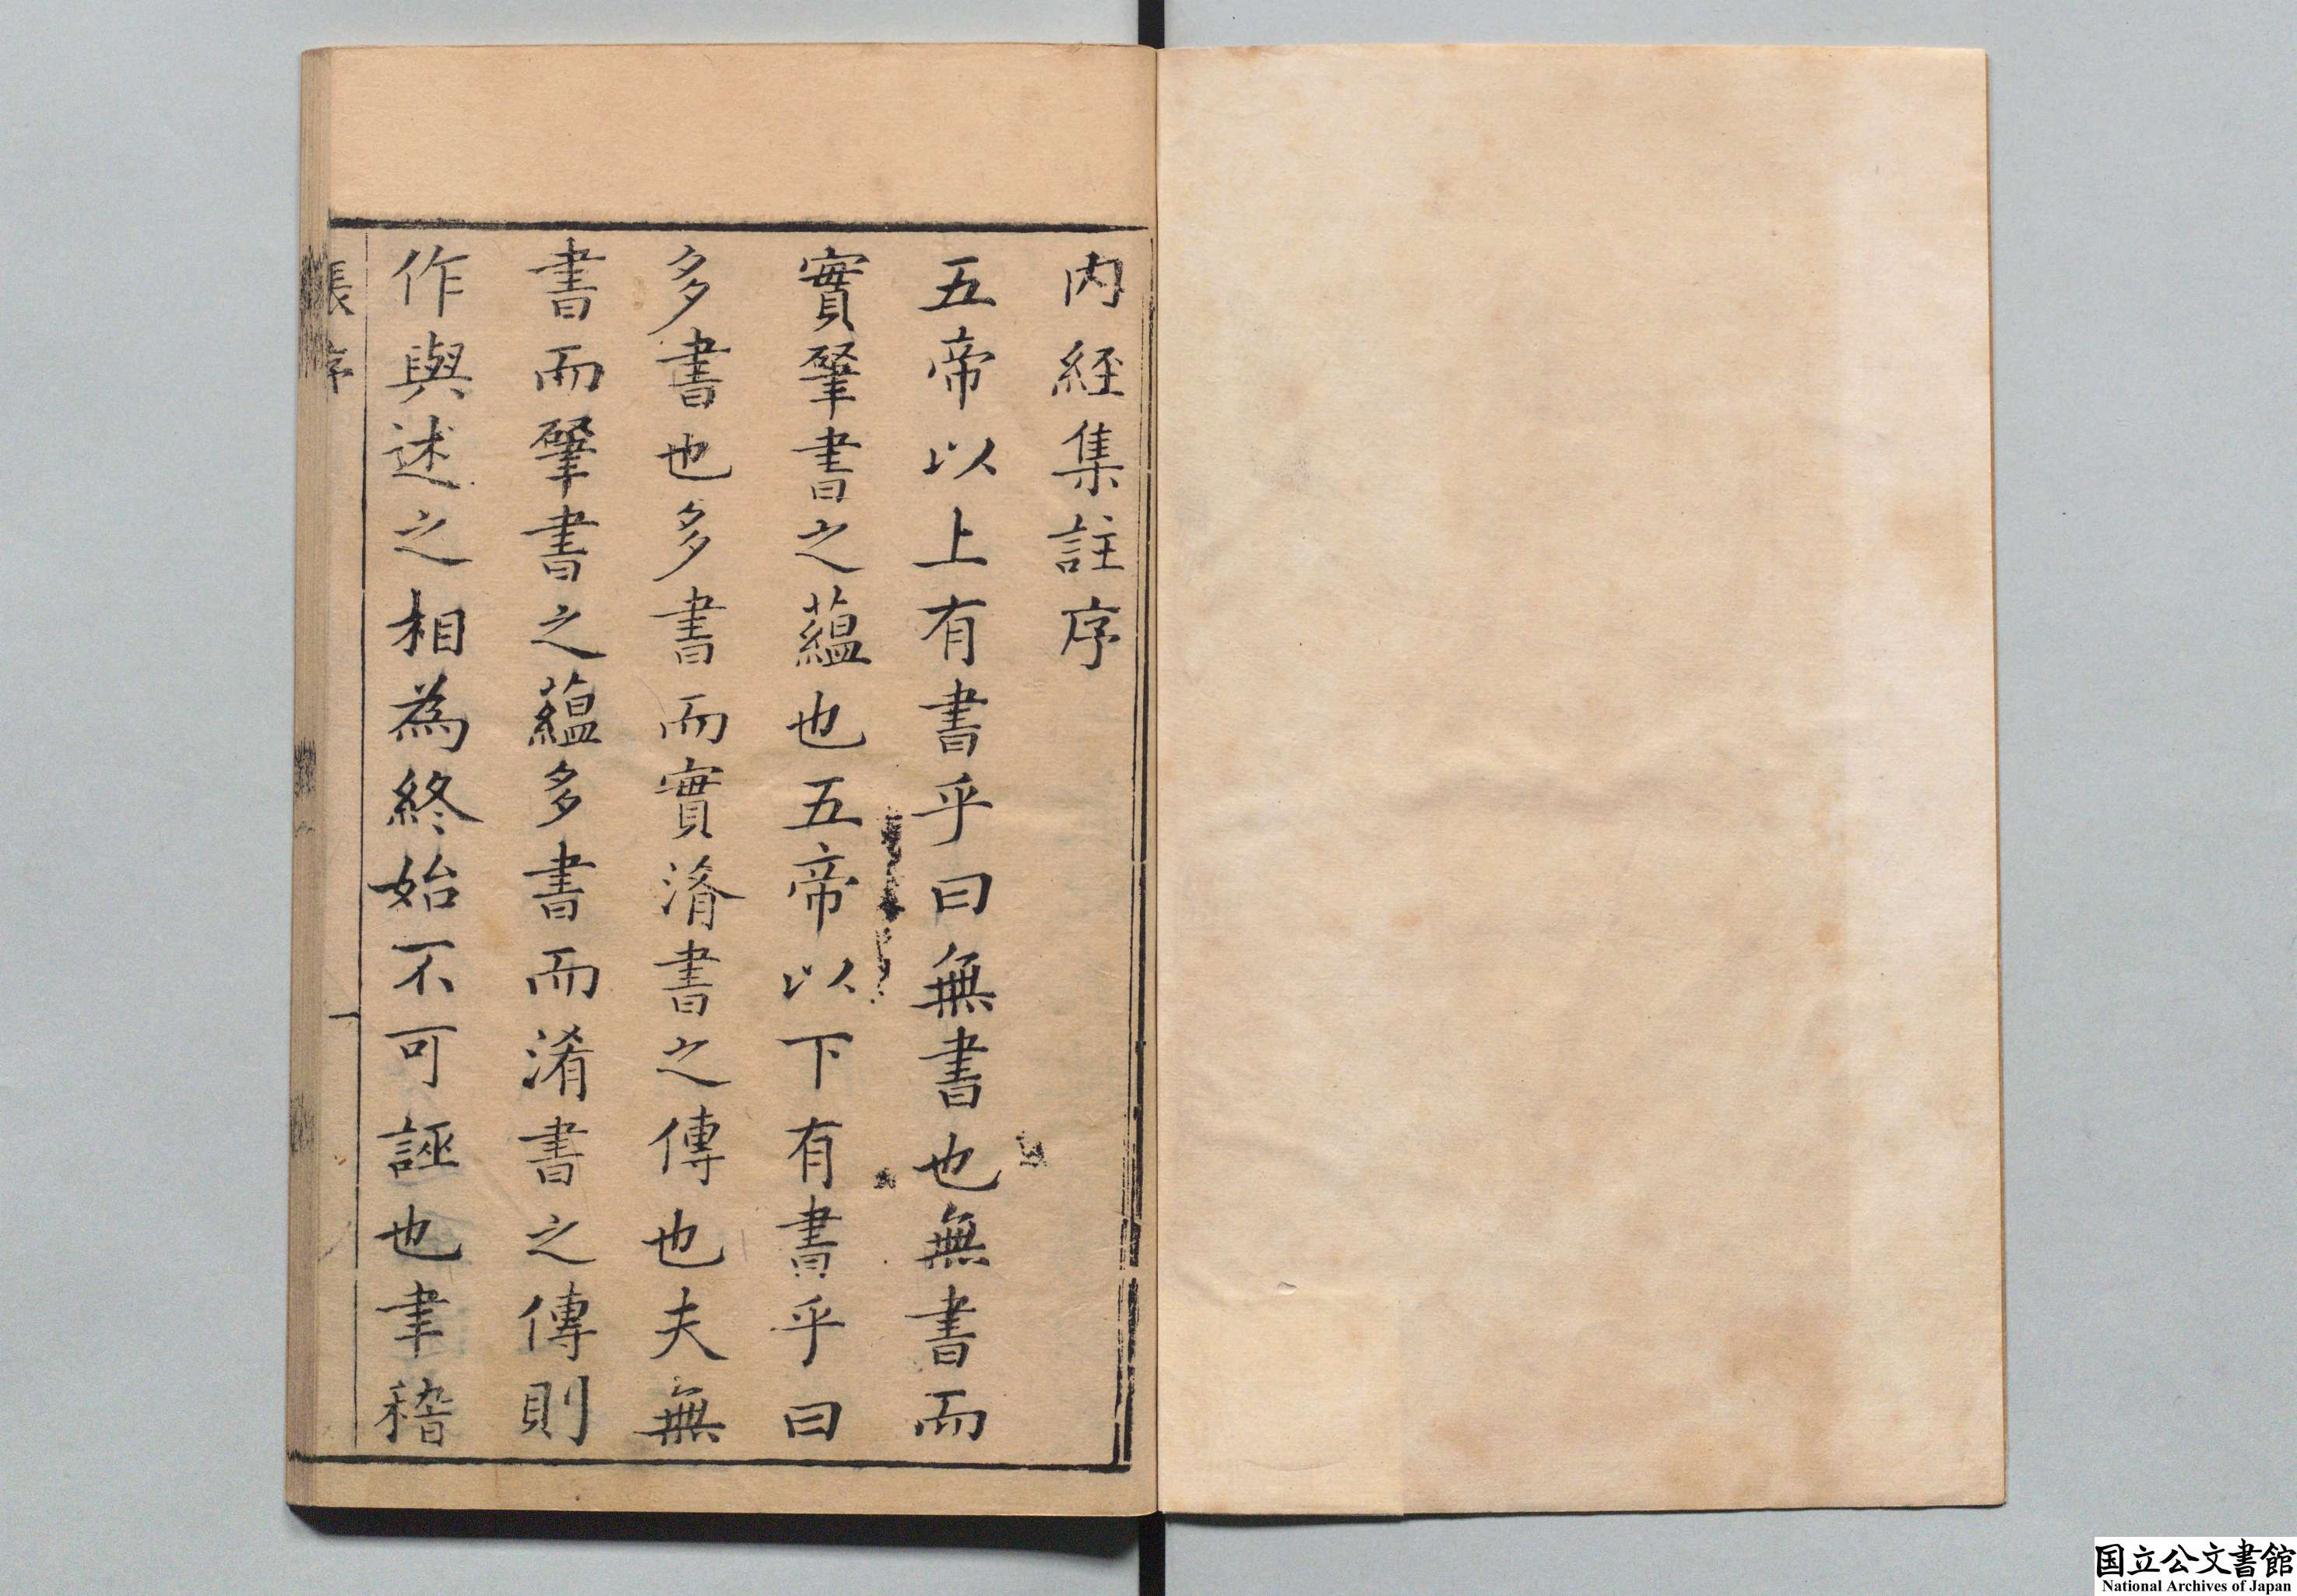 内經集註序
五帝以上有書乎曰無書也無書而
實肇書之蘊也五帝以下有書乎曰
多書也多書而實淆書之傳也夫無
書而肇書之蘊多書而淆書之傳則
作與述之相為終始不可誣也聿稽
張序
一
国立公文書館
National Archives of Japan